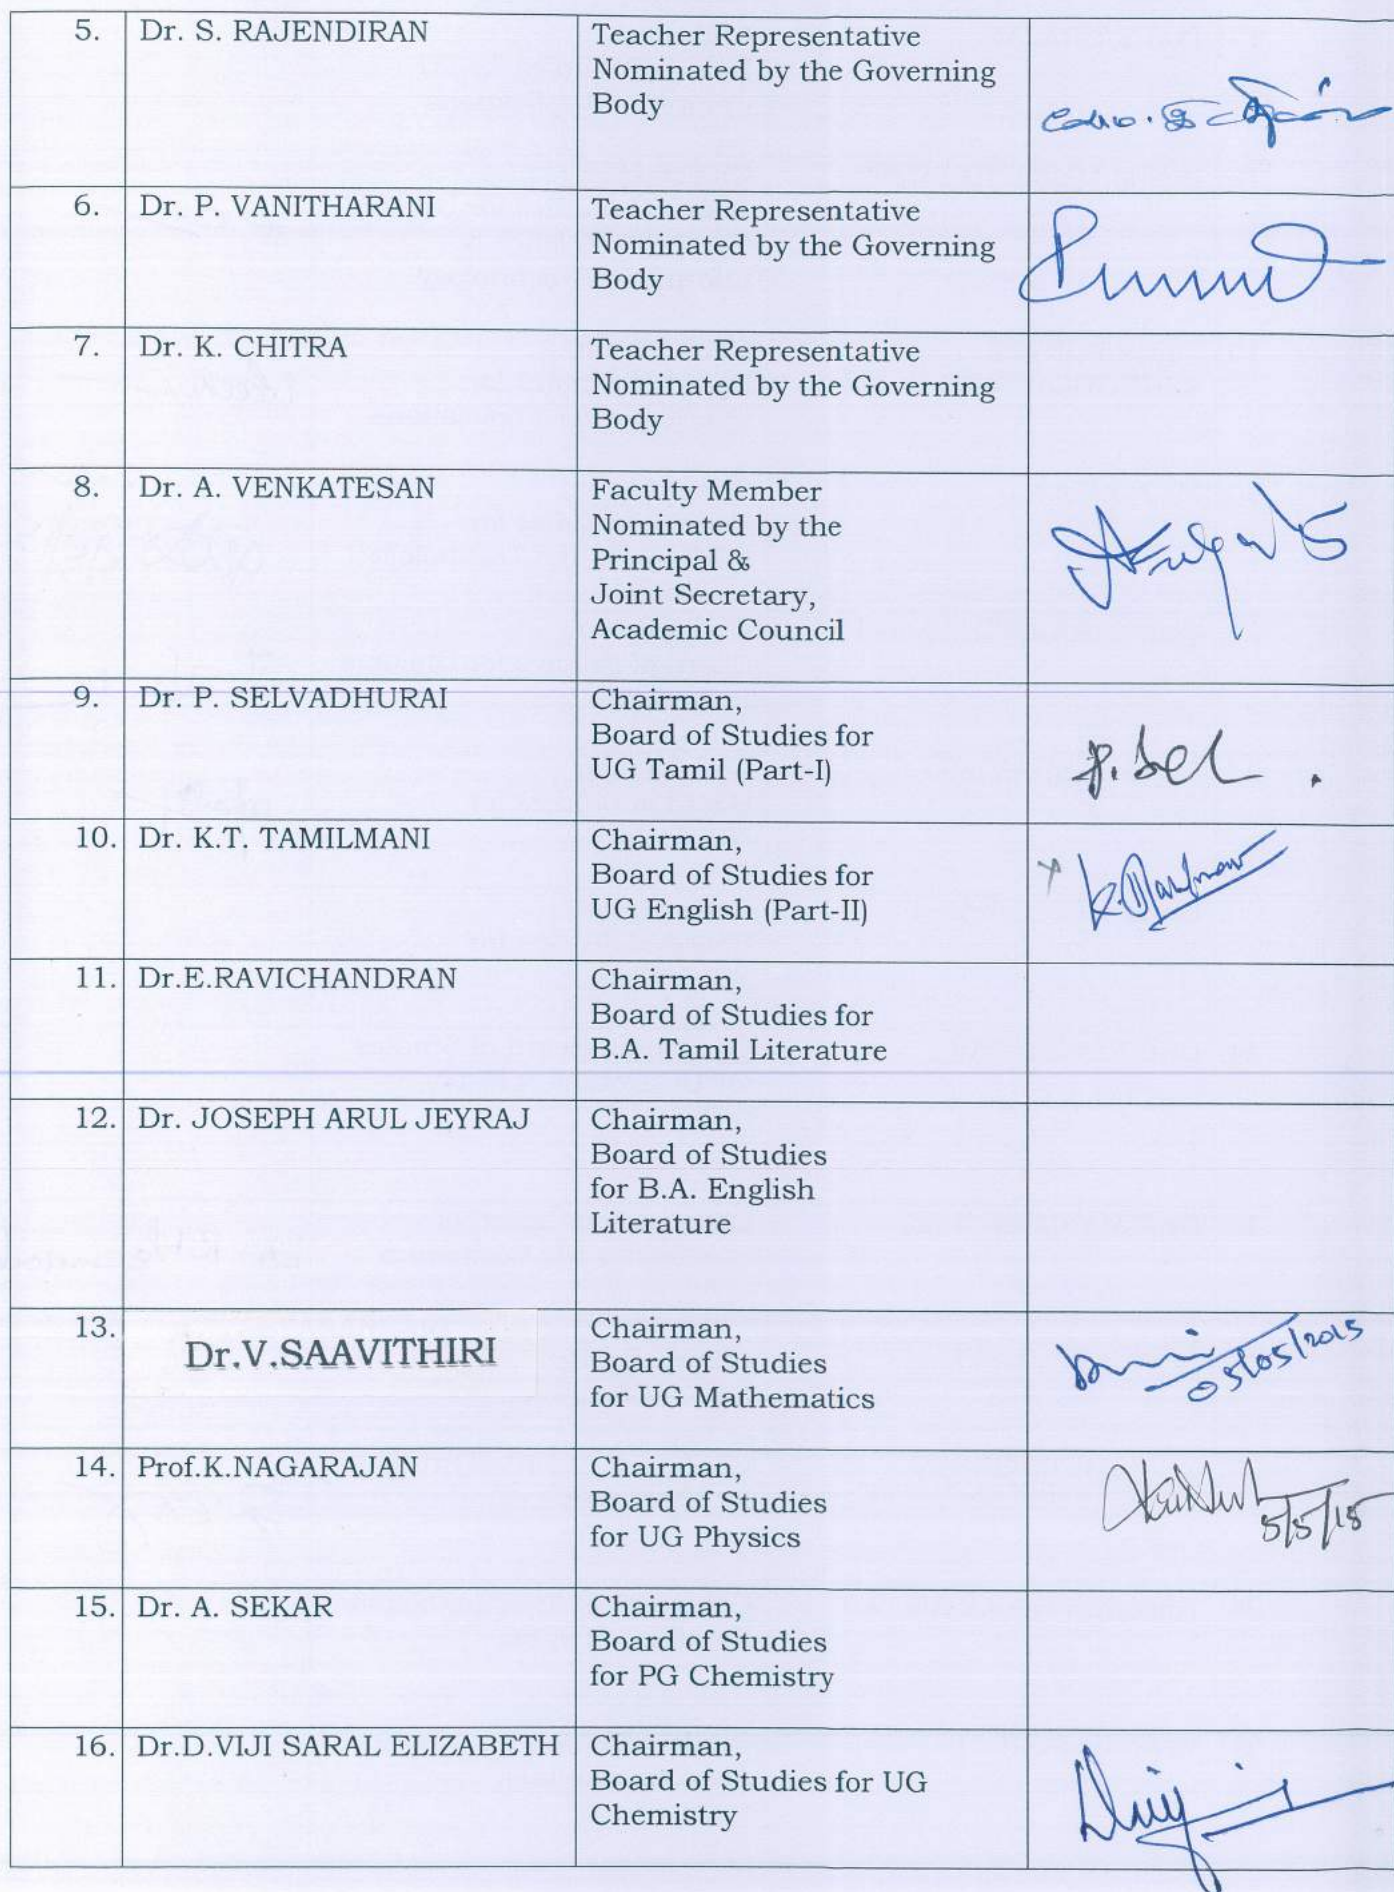 5. Dr. S. RAJENDIRAN
Teacher Representative
Nominated by the Governing
Body
6. Dr. P. VANITHARANI
Teacher Representative
Nominated by the Governing
Body
7. Dr. K. CHITRA
Teacher Representative
Nominated by the Governing
Body
8. Dr. A. VENKATESAN
Faculty Member
Nominated by the
Principal &
Joint Secretary,
Academic Council
9. Dr. P. SELVADHURAI
Chairman,
Board of Studies for
UG Tamil (Part-I)
P. Sel
10. Dr. K.T. TAMILMANI
Chairman,
Board of Studies for
UG English (Part-II)
11. Dr.E.RAVICHANDRAN
Chairman,
Board of Studies for
B.A. Tamil Literature
12. Dr. JOSEPH ARUL JEYRAJ
Chairman,
Board of Studies
for B.A. English
Literature
13. Dr.V.SAAVITHIRI
Chairman,
Board of Studies
for UG Mathematics
05/05/2015
14. Prof.K.NAGARAJAN
Chairman,
Board of Studies
for UG Physics
5/5/15
15. Dr. A. SEKAR
Chairman,
Board of Studies
for PG Chemistry
16. Dr.D.VIJI SARAL ELIZABETH
Chairman,
Board of Studies for UG
Chemistry